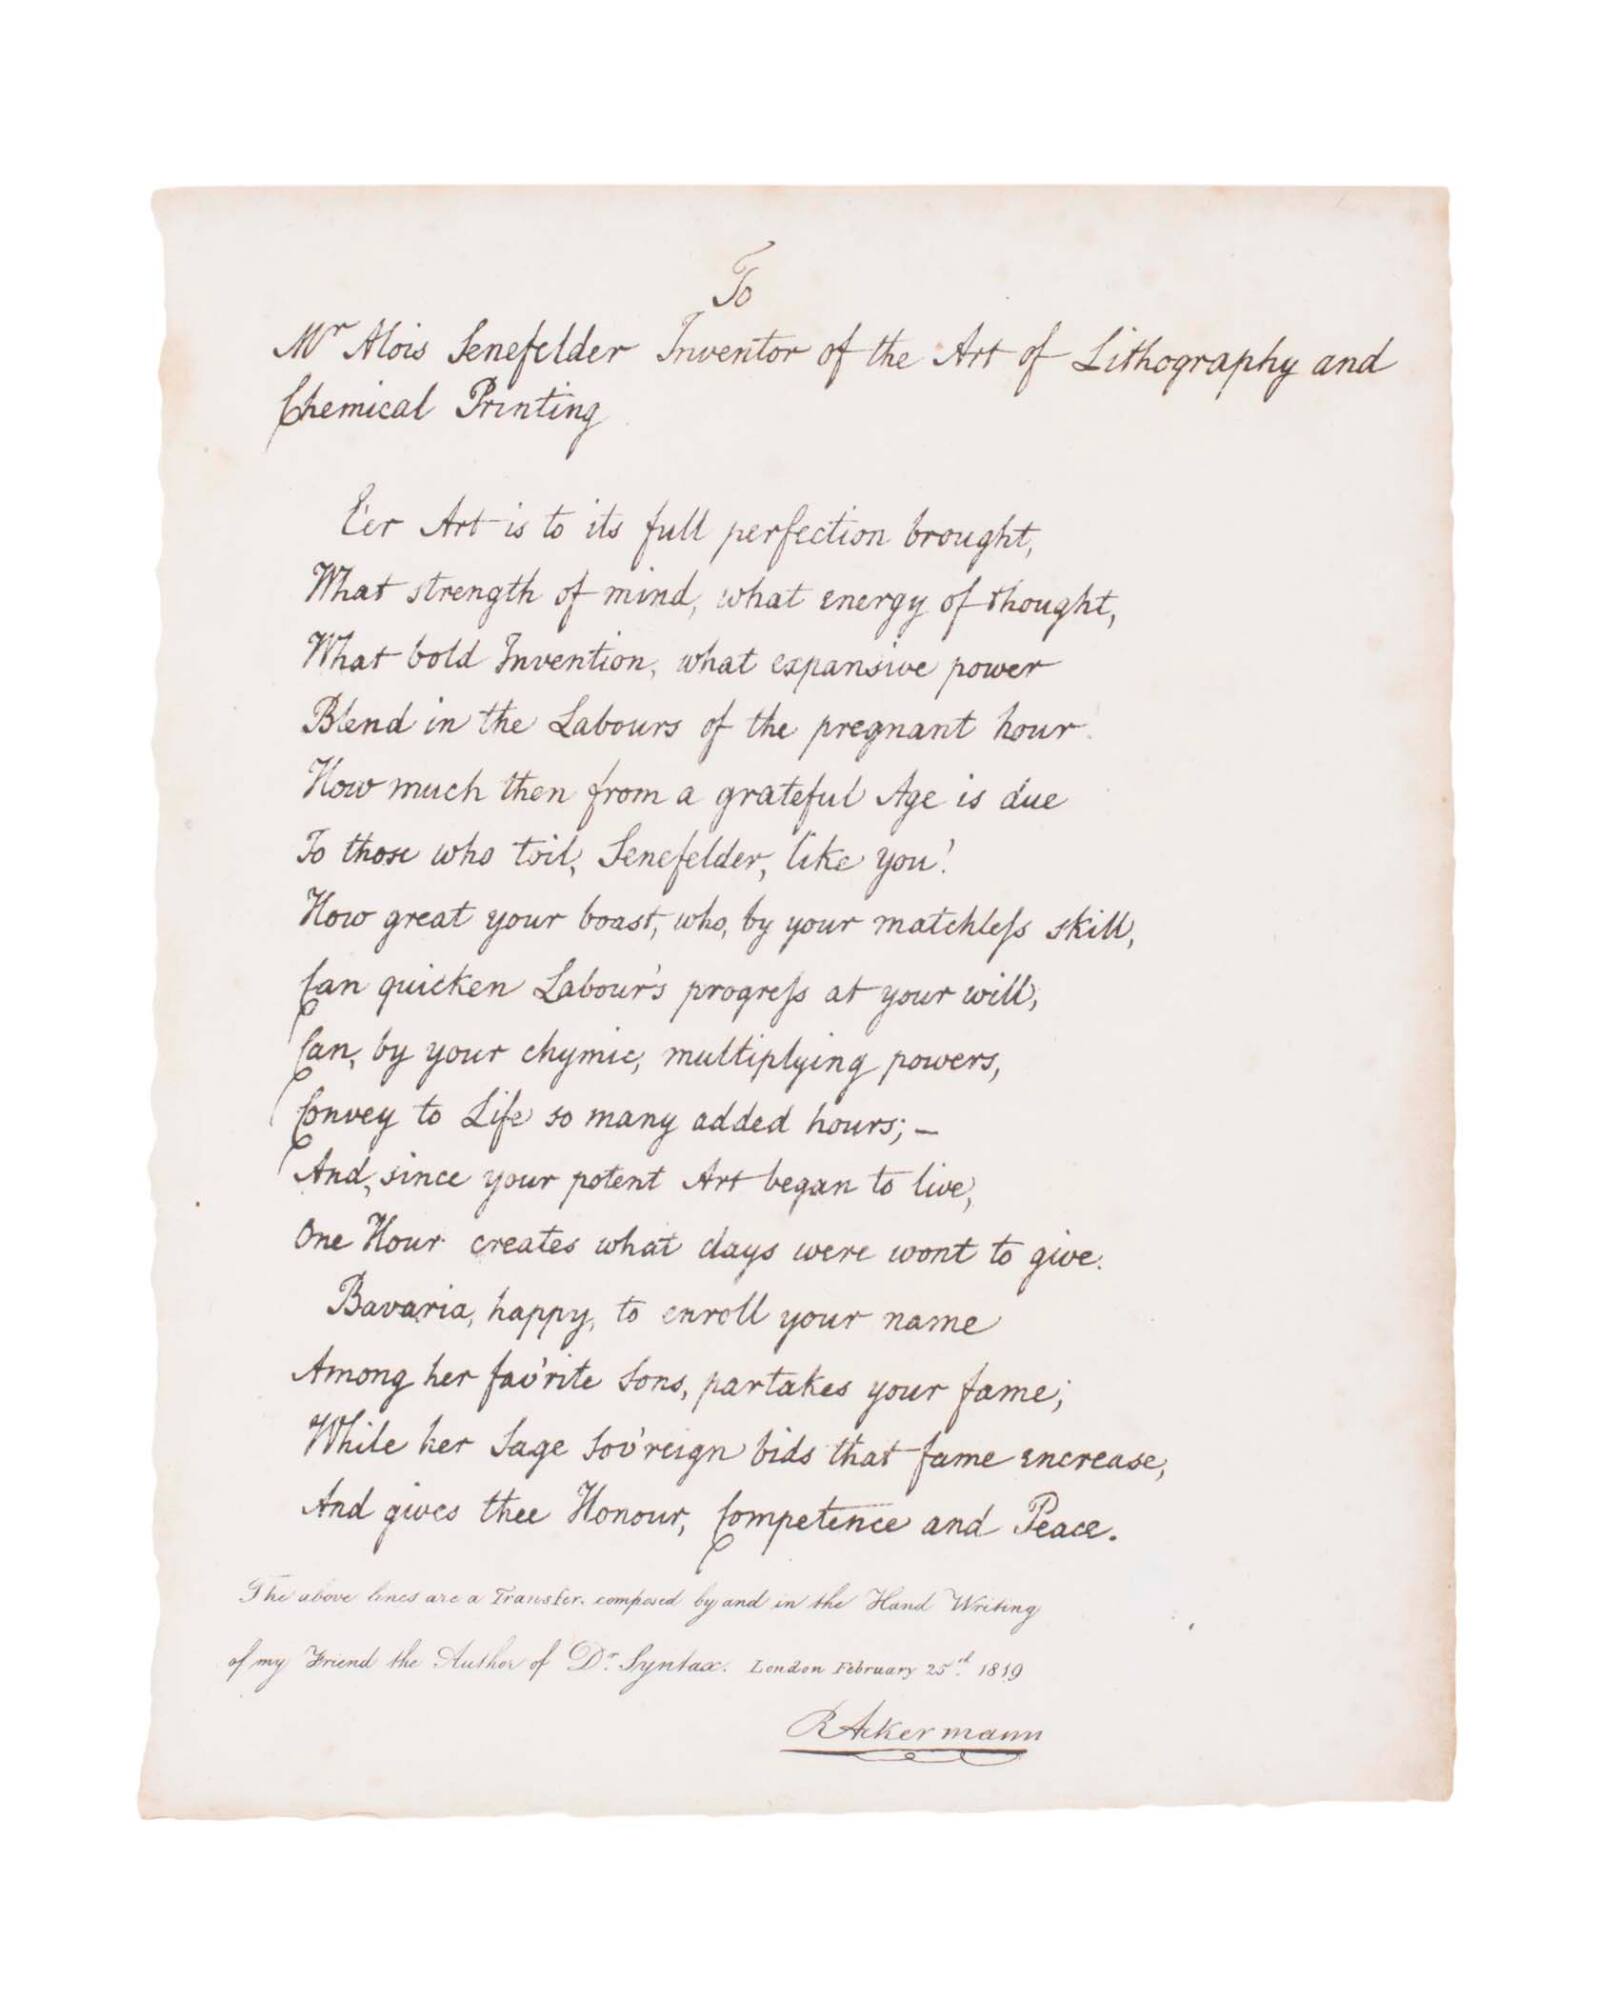 To
Mr Alois Senefelder Inventor of the Art of Lithography and
Chemical Printing
E'er Art is to its full perfection brought,
What strength of mind, what energy of thought,
What bold Invention, what expansive power
Blend in the Labours of the pregnant hour.
How much then from a grateful Age is due
To those who toil, Senefelder, like you!
How great your boast, who, by your matchleſs skill,
Can quicken Labour's progreſs at your will,
Can, by your chymic, multiplying powers,
Convey to Life so many added hours; —
And, since your potent Art began to live,
One Hour creates what days were wont to give.
Bavaria, happy, to enroll your name
Among her fav'rite Sons, partakes your fame;
While her Sage Sov'reign bids that fame encrease,
And gives thee Honour, Competence and Peace.
The above lines are a Transfer. composed by and in the Hand Writing
of my Friend the Author of Dr. Syntax. London February 25th. 1819
R Ackermann